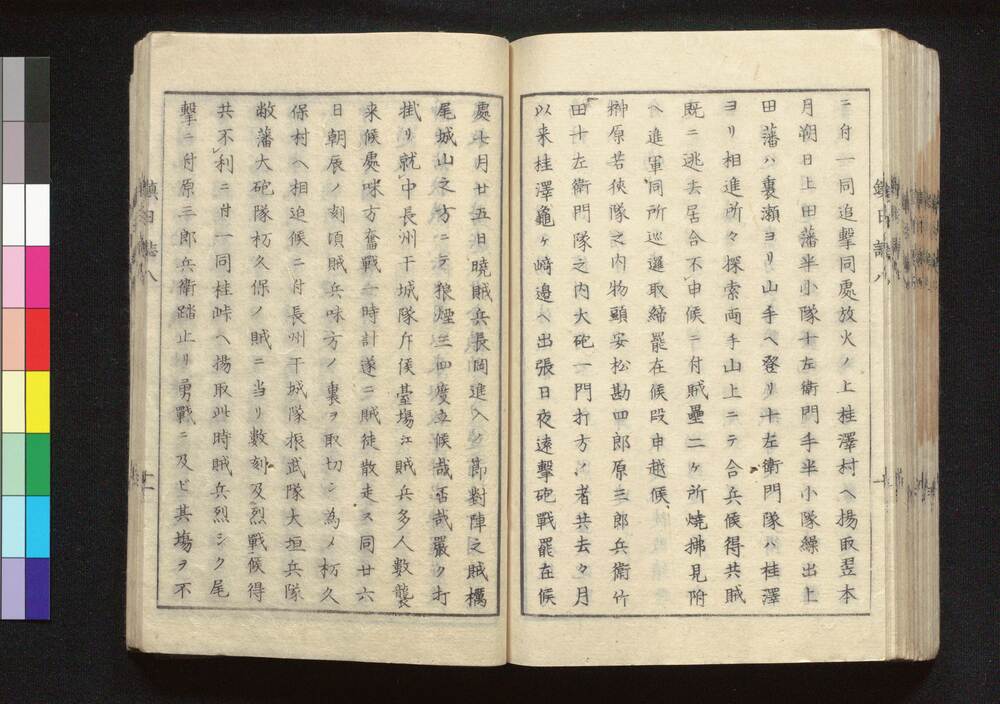 ニ付一同追撃同處放火ノ上桂澤村ヘ揚取翌本
月朔日上田藩半小隊十左衛門手半小隊繰出上
田藩ハ裏瀬ヨリ山手ヘ登リ十左衛門隊ハ桂澤
ヨリ相進所々探索両手山上ニテ合兵候得共賊
既ニ逃去居合不申候ニ付賊壘二ヶ所焼拂見附
ヘ進軍同所巡邏取締罷在候段申越候
榊原若狭隊之内物頭安松勘四郎原三郎兵衛竹
田十左衛門隊之内大砲一門打方ノ者共去ル月
以来桂澤龜ヶ﨑邉ヘ出張日夜遠撃砲戰罷在候
處七月廿五日曉賊兵長岡進入ノ節對陣之賊橡
尾城山之方ニテ狼煙三四度立候哉否哉嚴ク打
掛リ就中長州干城隊斥候臺場江賊兵多人數襲
来候處味方奮戰一時計遂ニ賊徒散走ス同廿六
日朝辰ノ刻頃賊兵味方ノ裏ヲ取切ン為メ杤久
保村ヘ相迫候ニ付長州干城隊振武隊大垣兵隊
敝藩大砲隊杤久保ノ賊ニ当リ數刻及烈戰候得
共不利ニ付一同桂峠ヘ揚取此時賊兵烈シク尾
撃ニ付原三郎兵衛踏止リ勇戰ニ及ビ其場ヲ不